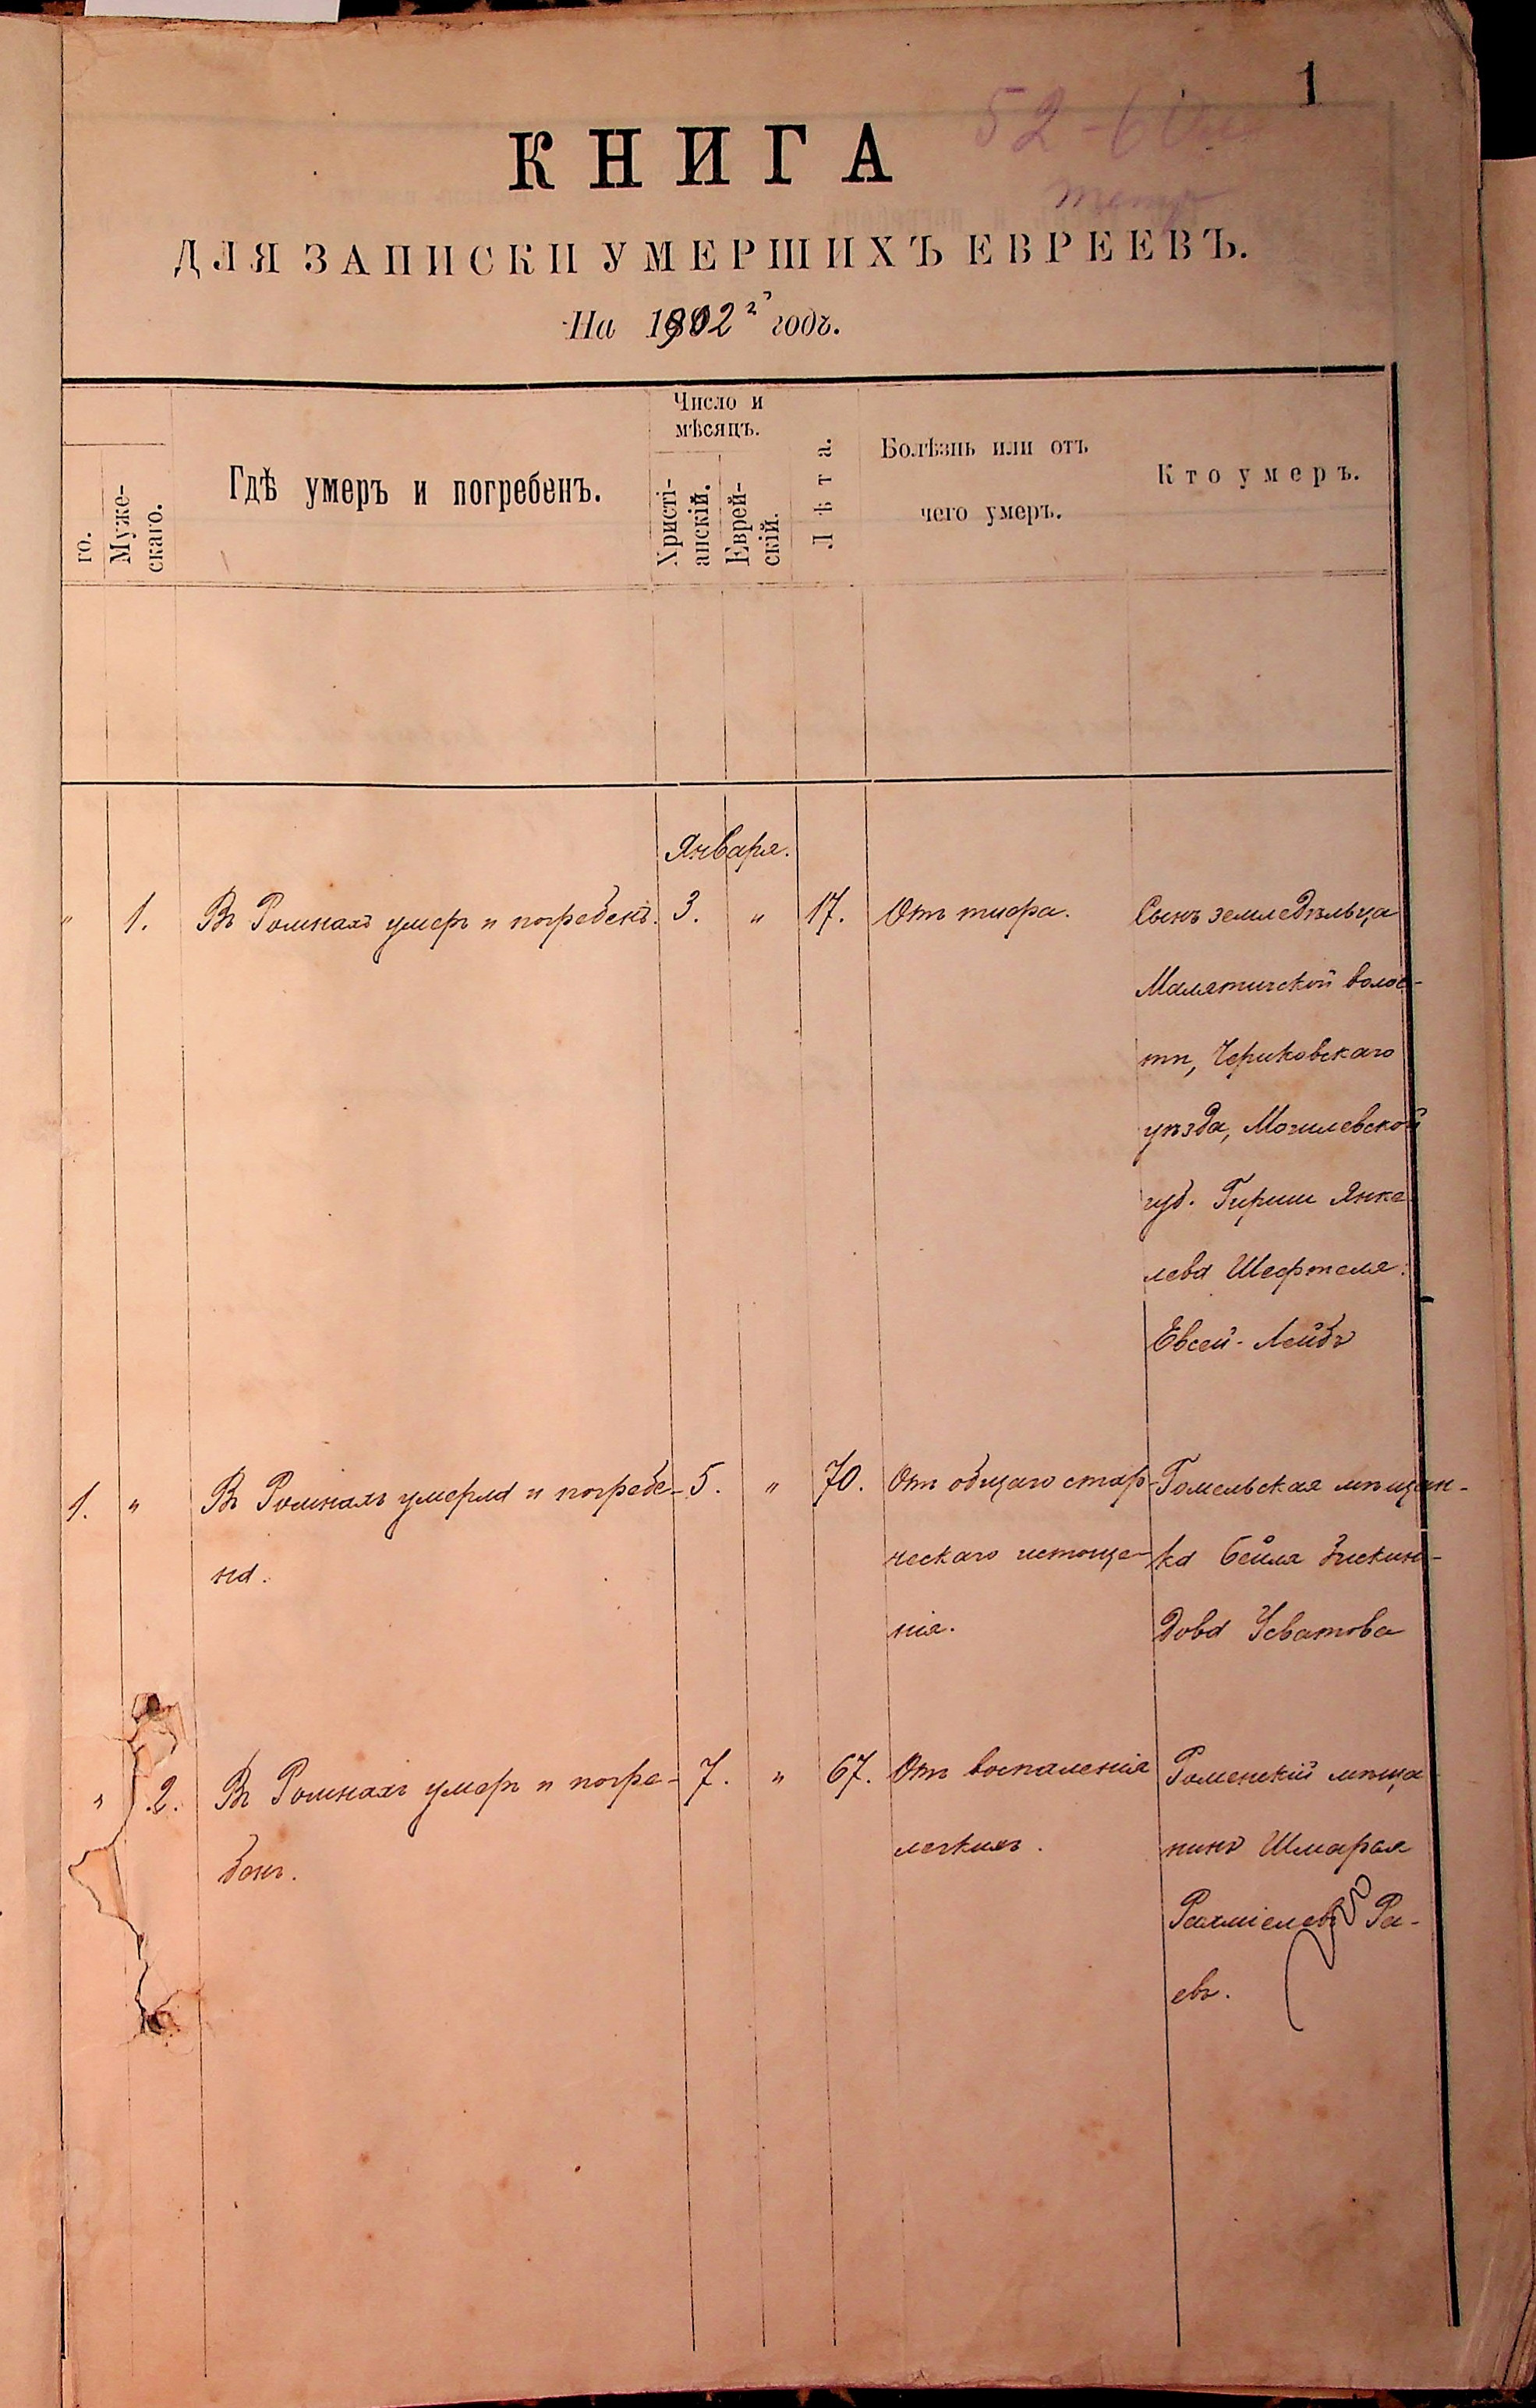 1
52
КНИГА
ДЛЯ ЗАПИСКИ УМЕРШИХЪ ЕВРЕЕВЪ.
На 1902 годъ.
го.
Муже-
скаго.
Гдѣ умеръ и погребенъ.
Число и
мѣсяцъ.
Христі-
анскій.
Еврей-
скій.
Лѣта.
Болѣзнь или отъ
чего умеръ.
Кто умеръ.
Января.
" 1. Въ Ромнахъ умеръ и погребенъ. 3. " 17. Отъ тифа. Сынъ земледѣльца
Малятичской волос-
ти, Чериковскаго
уѣзда, Могилевской
губ. Гирши Янке
лева Шефтеля.
Евсей-Лейбъ
1. " Въ Ромнахъ умерла и погребе- 5. " 70. Отъ общаго стар- Гомельская мѣщан-
на. ческаго истоще- ка Бейля Зискин-
нія. дова Усватова
" 2. Въ Ромнахъ умеръ и погре- 7. " 67. Отъ воспаленія Роменскій мѣща
бенъ. легкихъ. нинъ Шмарая
Рахміелевъ Ра-
евъ.